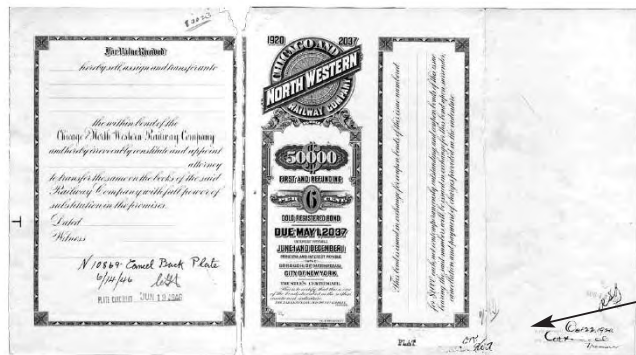 For Value Received
hereby sell, assign and transfer unto
the within bond of the
Chicago & North Western Railway Company
and hereby irrevocably constitute and appoint
attorney
to transfer the same on the books of the said
Railway Company with full power of
substitution in the premises.
Dated
Witness
N 10869 Cancel Back Plate
6/14/46
PLATE CANCELLED JUN 19 1946
1920 2037
CHICAGO AND
NORTH WESTERN
RAILWAY COMPANY
50000
FIRST AND REFUNDING
6
PER CENT
GOLD REGISTERED BOND
DUE MAY 1, 2037
INTEREST PAYABLE
JUNE 1 AND DECEMBER 1
PRINCIPAL AND INTEREST PAYABLE
CITY OF NEW YORK.
TRUSTEE'S CERTIFICATE
This is to certify that this is one
of the bonds described in the within
mentioned indenture.
This bond is issued in exchange for coupon bonds of this issue numbered
for $1000 each, not contemporaneously outstanding and coupon bonds of this issue
bearing the said numbers will be issued in exchange for this bond upon surrender,
cancellation and payment of charges provided in the indenture.
PLAT
Oct 22, 1920